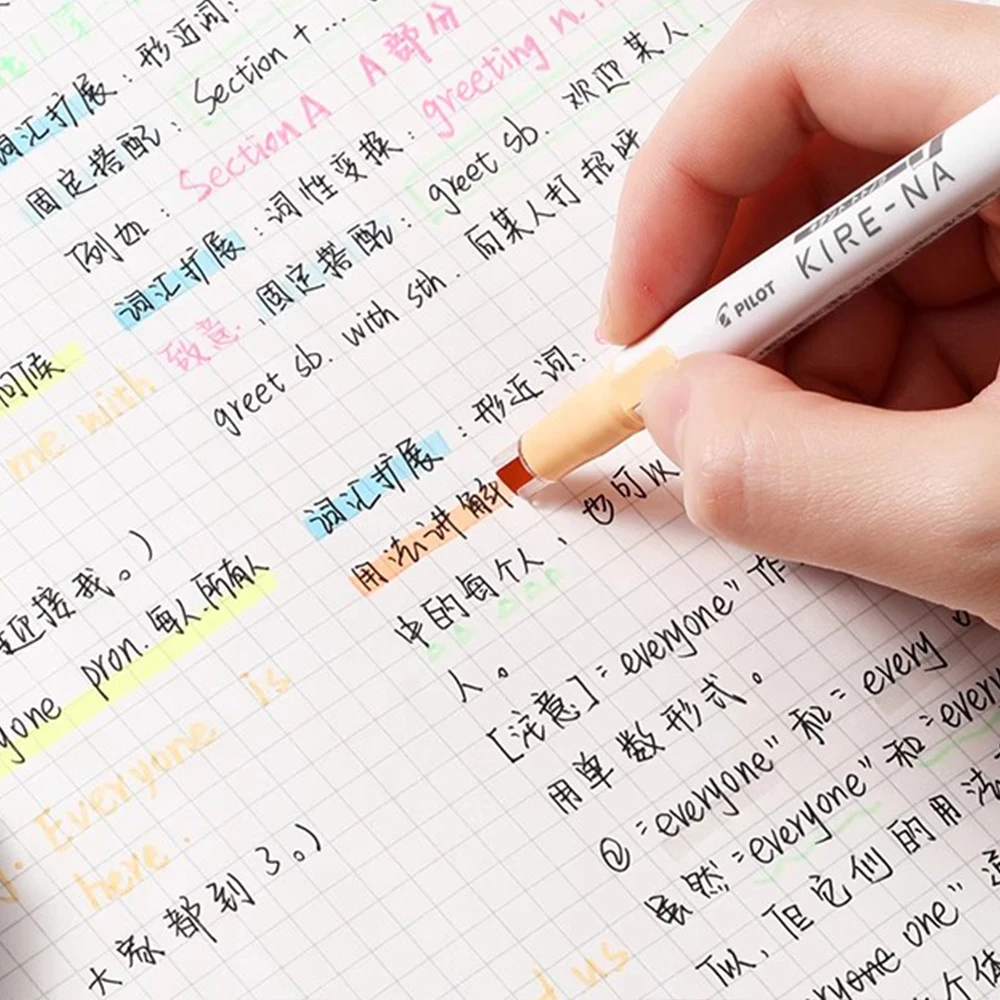 词汇扩展：形近词：
Section + ...
A部分
固定搭配：
Section A
greeting n.
例如：
词汇扩展：词性变换：
greet sb. 欢迎某人.
致意. 固定搭配：
问候
me with
greet sb. with sth. 向某人打招呼
词汇扩展：形近词：
用法讲解
也可以
中的每个人，
人。
迎接我。）
yone pron. 每人.所有人
Everyone is
here.
大家都到了。）
[注意]："everyone"作
用单数形式。
② "everyone" 和 "every
虽然 "everyone" 和 "every
TW, 但它们的用法
one"
个体
us
PILOT
KIRE-NA